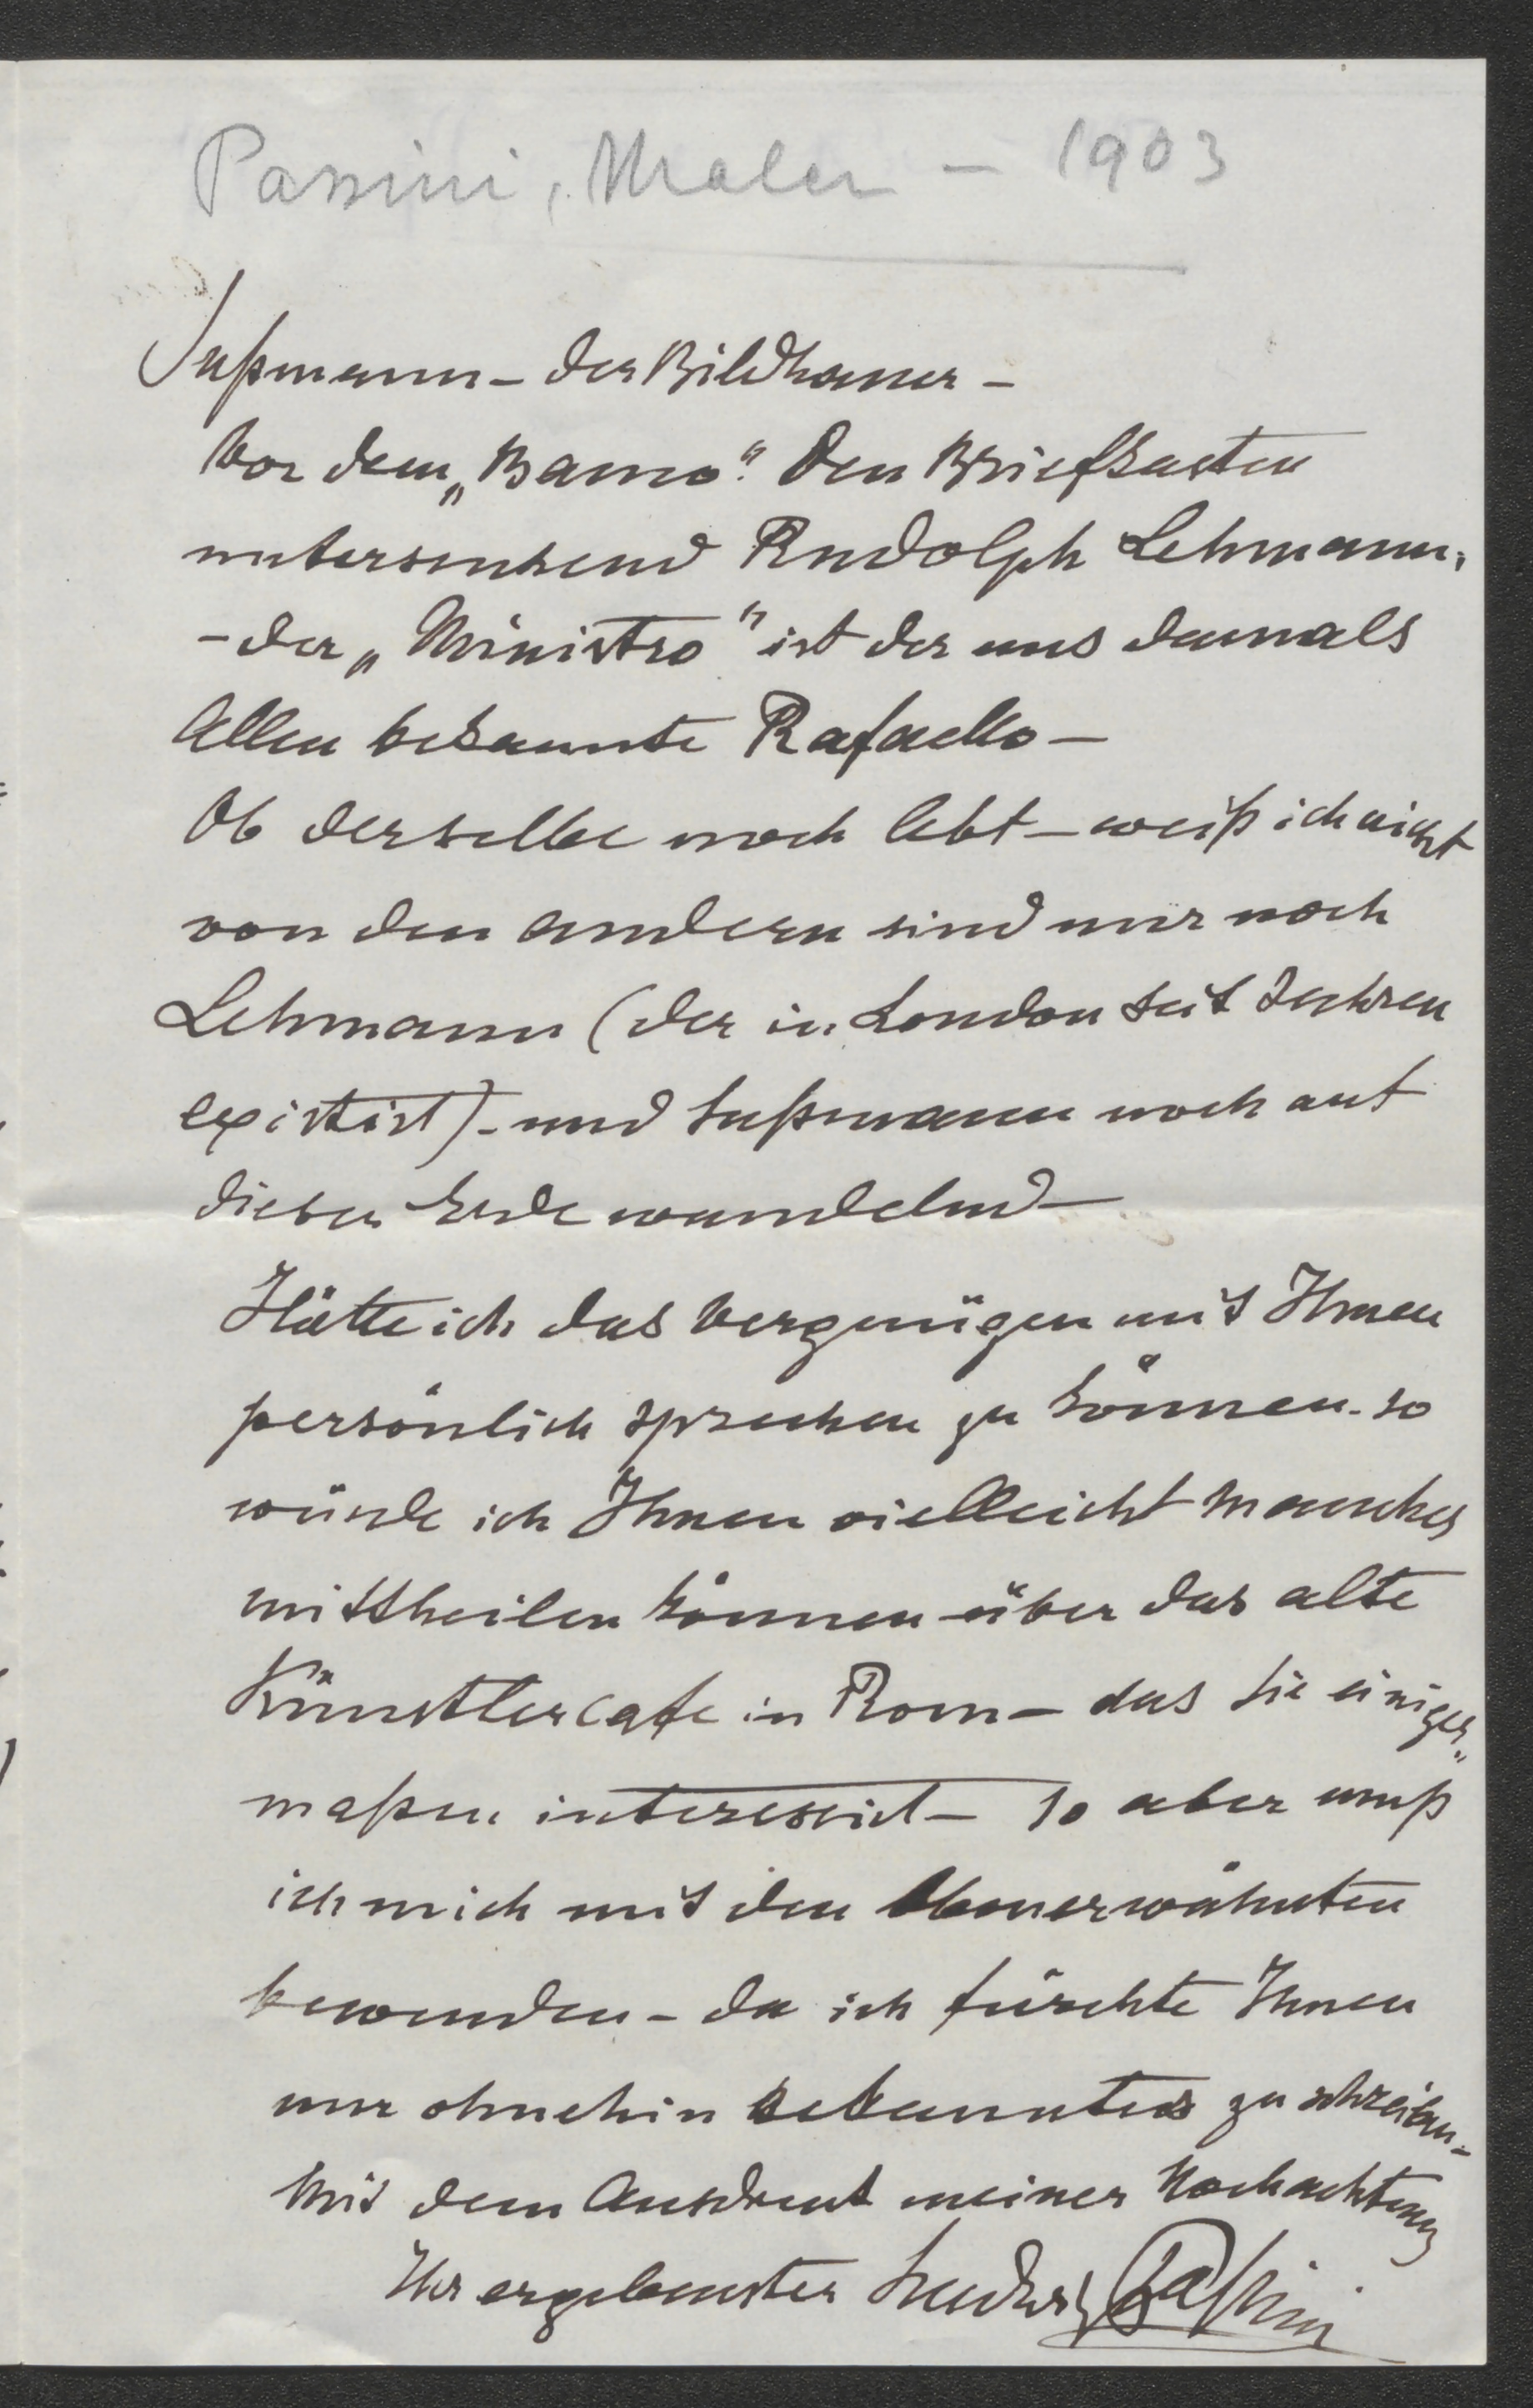 Passini, Maler – 1903
Sußmann – der Bildhauer –
Vor dem „Banco“ den Briefkasten
untersuchend Rudolph Lehmann,
– der „Ministro“ ist der uns damals
Allen bekannte Rafaello –
Ob derselbe noch lebt – weiß ich nicht
von den andern sind nur noch
Lehmann (der in London seit Jahren
existirt) – und Sußmann noch auf
dieser Erde wandelnd –
Hätte ich das Vergnügen mit Ihnen
persönlich sprechen zu können – so
würde ich Ihnen vielleicht manches
mittheilen können – über das alte
Künstlercafe in Rom – das Sie einiger„
maßen interessirt – so aber muß
ich mich mit den Obenerwähnten
bewenden – da ich fürchte Ihnen
nur ohnehin bekanntes zu schreiben –
Mit dem Ausdruck meiner Hochachtung
Ihr ergebenster Ludwig Paßini